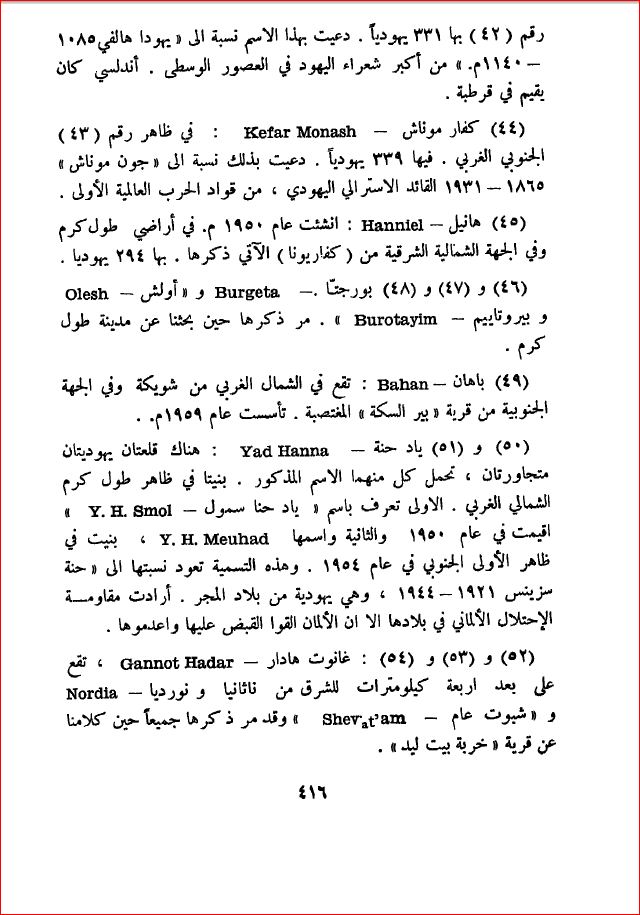 رقم (٤٢) بها ٣٣١ يهودياً . دعيت بهذا الاسم نسبة الى « يهودا هالفي ١٠٨٥
– ١١٤٠م. » من أكبر شعراء اليهود في العصور الوسطى . أندلسي كان
يقيم في قرطبة .
(٤٤) كفار موناش – Kefar Monash : في ظاهر رقم (٤٣)
الجنوبي الغربي . فيها ٣٣٩ يهودياً . دعيت بذلك نسبة الى « جون موناش »
١٨٦٥ – ١٩٣١ القائد الاسترالي اليهودي ، من قواد الحرب العالمية الأولى .
(٤٥) هانيل – Hanniel : انشئت عام ١٩٥٠ م. في أراضي طول كرم
وفي الجهة الشمالية الشرقية من ( كفاريونا ) الآتي ذكرها . بها ٢٩٤ يهوديا .
(٤٦) و (٤٧) و (٤٨) بورجتّا .– Burgeta و « أولش – Olesh
و بيروتاييم – Burotayim » . مر ذكرها حين بحثنا عن مدينة طول
كرم .
(٤٩) باهان – Bahan : تقع في الشمال الغربي من شويكة وفي الجهة
الجنوبية من قرية « بير السكة » المغتصبة . تأسست عام ١٩٥٩م. .
(٥٠) و (٥١) ياد حنة – Yad Hanna : هناك قلعتان يهوديتان
متجاورتان ، تحمل كل منهما الاسم المذكور . بنيتا في ظاهر طول كرم
الشمالي الغربي . الاولى تعرف باسم « ياد حنا سمول – Y. H. Smol »
اقيمت في عام ١٩٥٠ والثانية واسمها Y. H. Meuhad ، بنيت في
ظاهر الأولى الجنوبي في عام ١٩٥٤ . وهذه التسمية تعود نسبتها الى « حنة
سزينس ١٩٢١ – ١٩٤٤ ، وهي يهودية من بلاد المجر . أرادت مقاومـــة
الإحتلال الألماني في بلادها الا ان الألمان القوا القبض عليها واعدموها .
(٥٢) و (٥٣) و (٥٤) : غانوت هادار – Gannot Hadar ، تقع
على بعد اربعة كيلومترات للشرق من ناثانيا و نورديا – Nordia
و « شيوت عام – Shev'at'am » وقد مر ذكرها جميعاً حين كلامنا
عن قرية « خربة بيت ليد » .
٤١٦